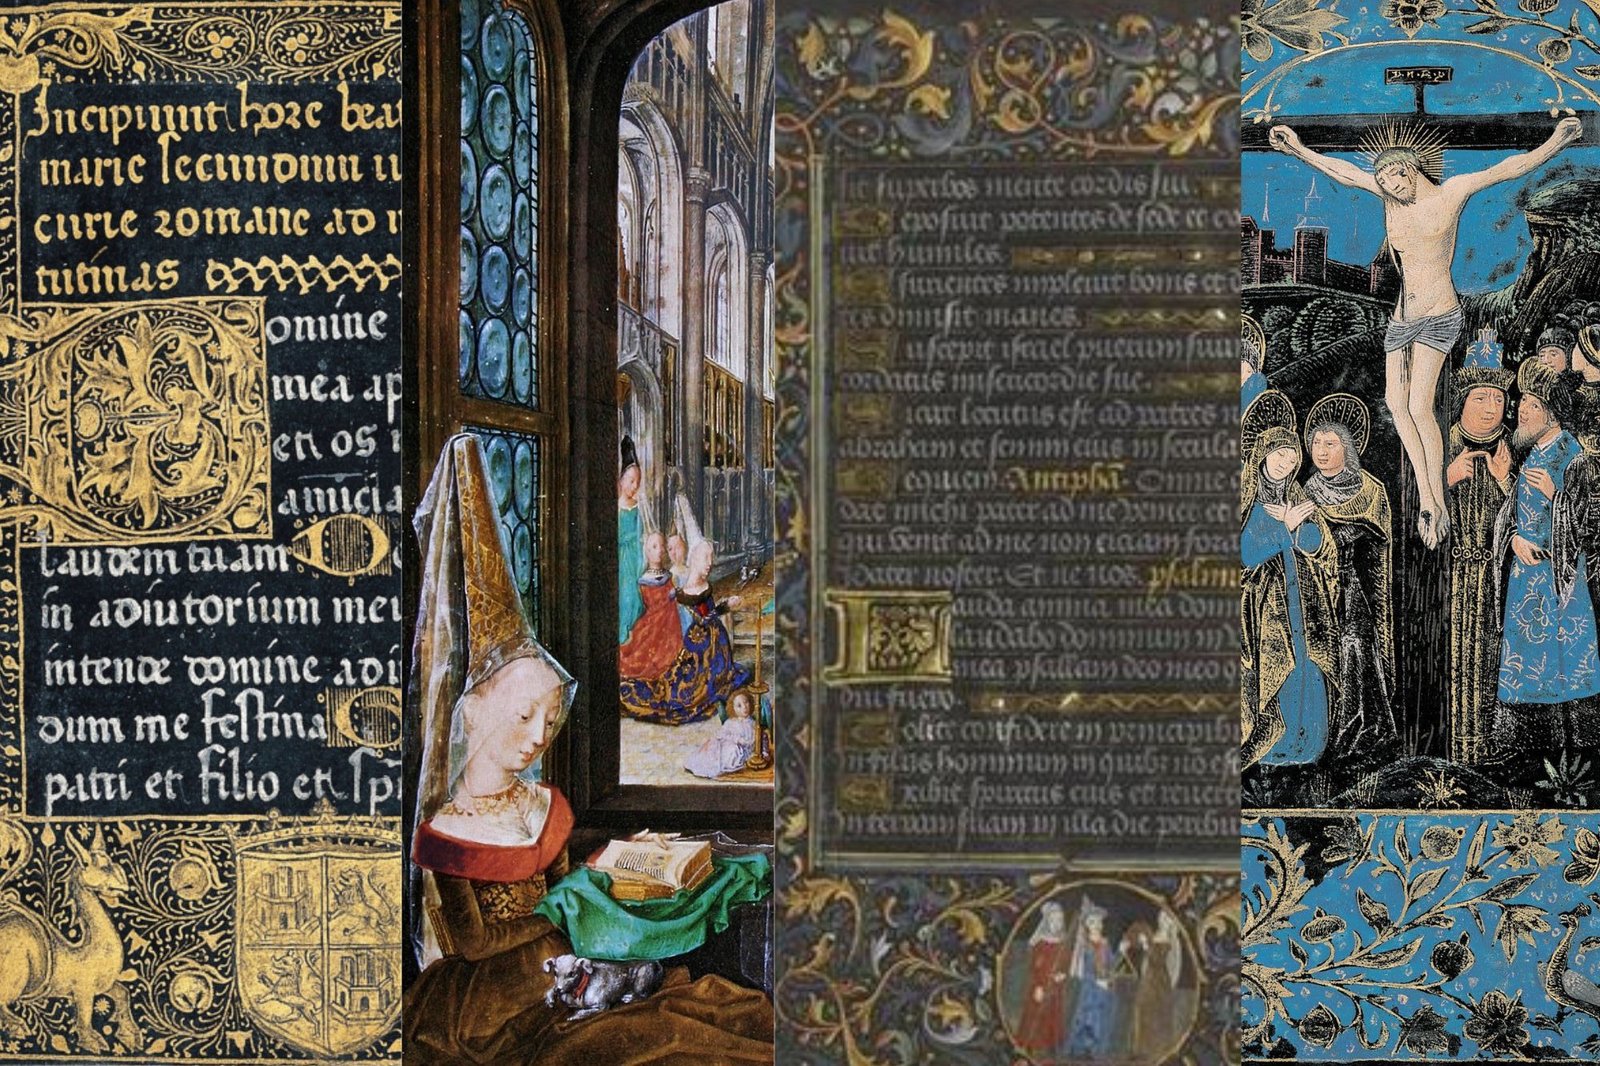 Incipiunt hore bea
marie secundum u
curie romane ad
tutinas
Domine
mea ap
et os
anuncia
laudem tuam D
in adiutorium meu
intende domine adi
dum me festina
patri et filio et sp̄
sit superbos mente cordis sui.
Deposuit potentes de sede et ex
uit humiles.
Esurientes impleuit bonis et d
tes dimisit inanes.
Suscepit israel puerum suu
cordatus misericordie sue.
Sicut locutus est ad patres n
abraham et semini eius in secula
equiem Antipha. Omne
dat michi pater ad me veniet et
qui venit ad me non eiciam fora
Pater noster. Et
Lauda anima mea domi
laudabo dominum in
mea psallam deo meo q
diu fuero.
Nolite confidere in principib
in filiis hominum in quibus
Exibit spiritus eius et reuer
in terram suam in illa die peribu